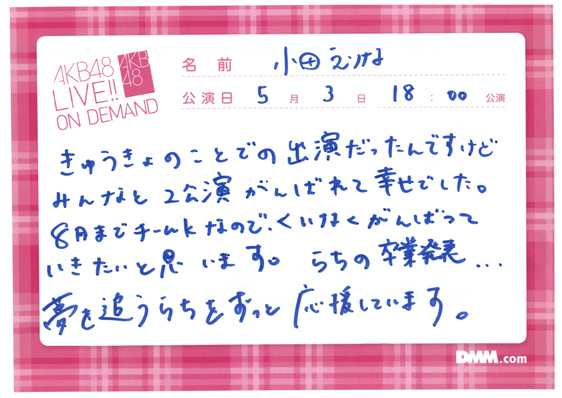 AKB48
LIVE!!
ON DEMAND
AKB
48
名前 小田えりな
公演日 5月3日 18:00公演
きゅうきょのことでの出演だったんですけど
みんなと2公演がんばれて幸せでした。
8月までチームKなので、くいなくがんばって
いきたいと思います。 らちの卒業発表...
夢を追うらちをずっと応援しています。
DMM.com